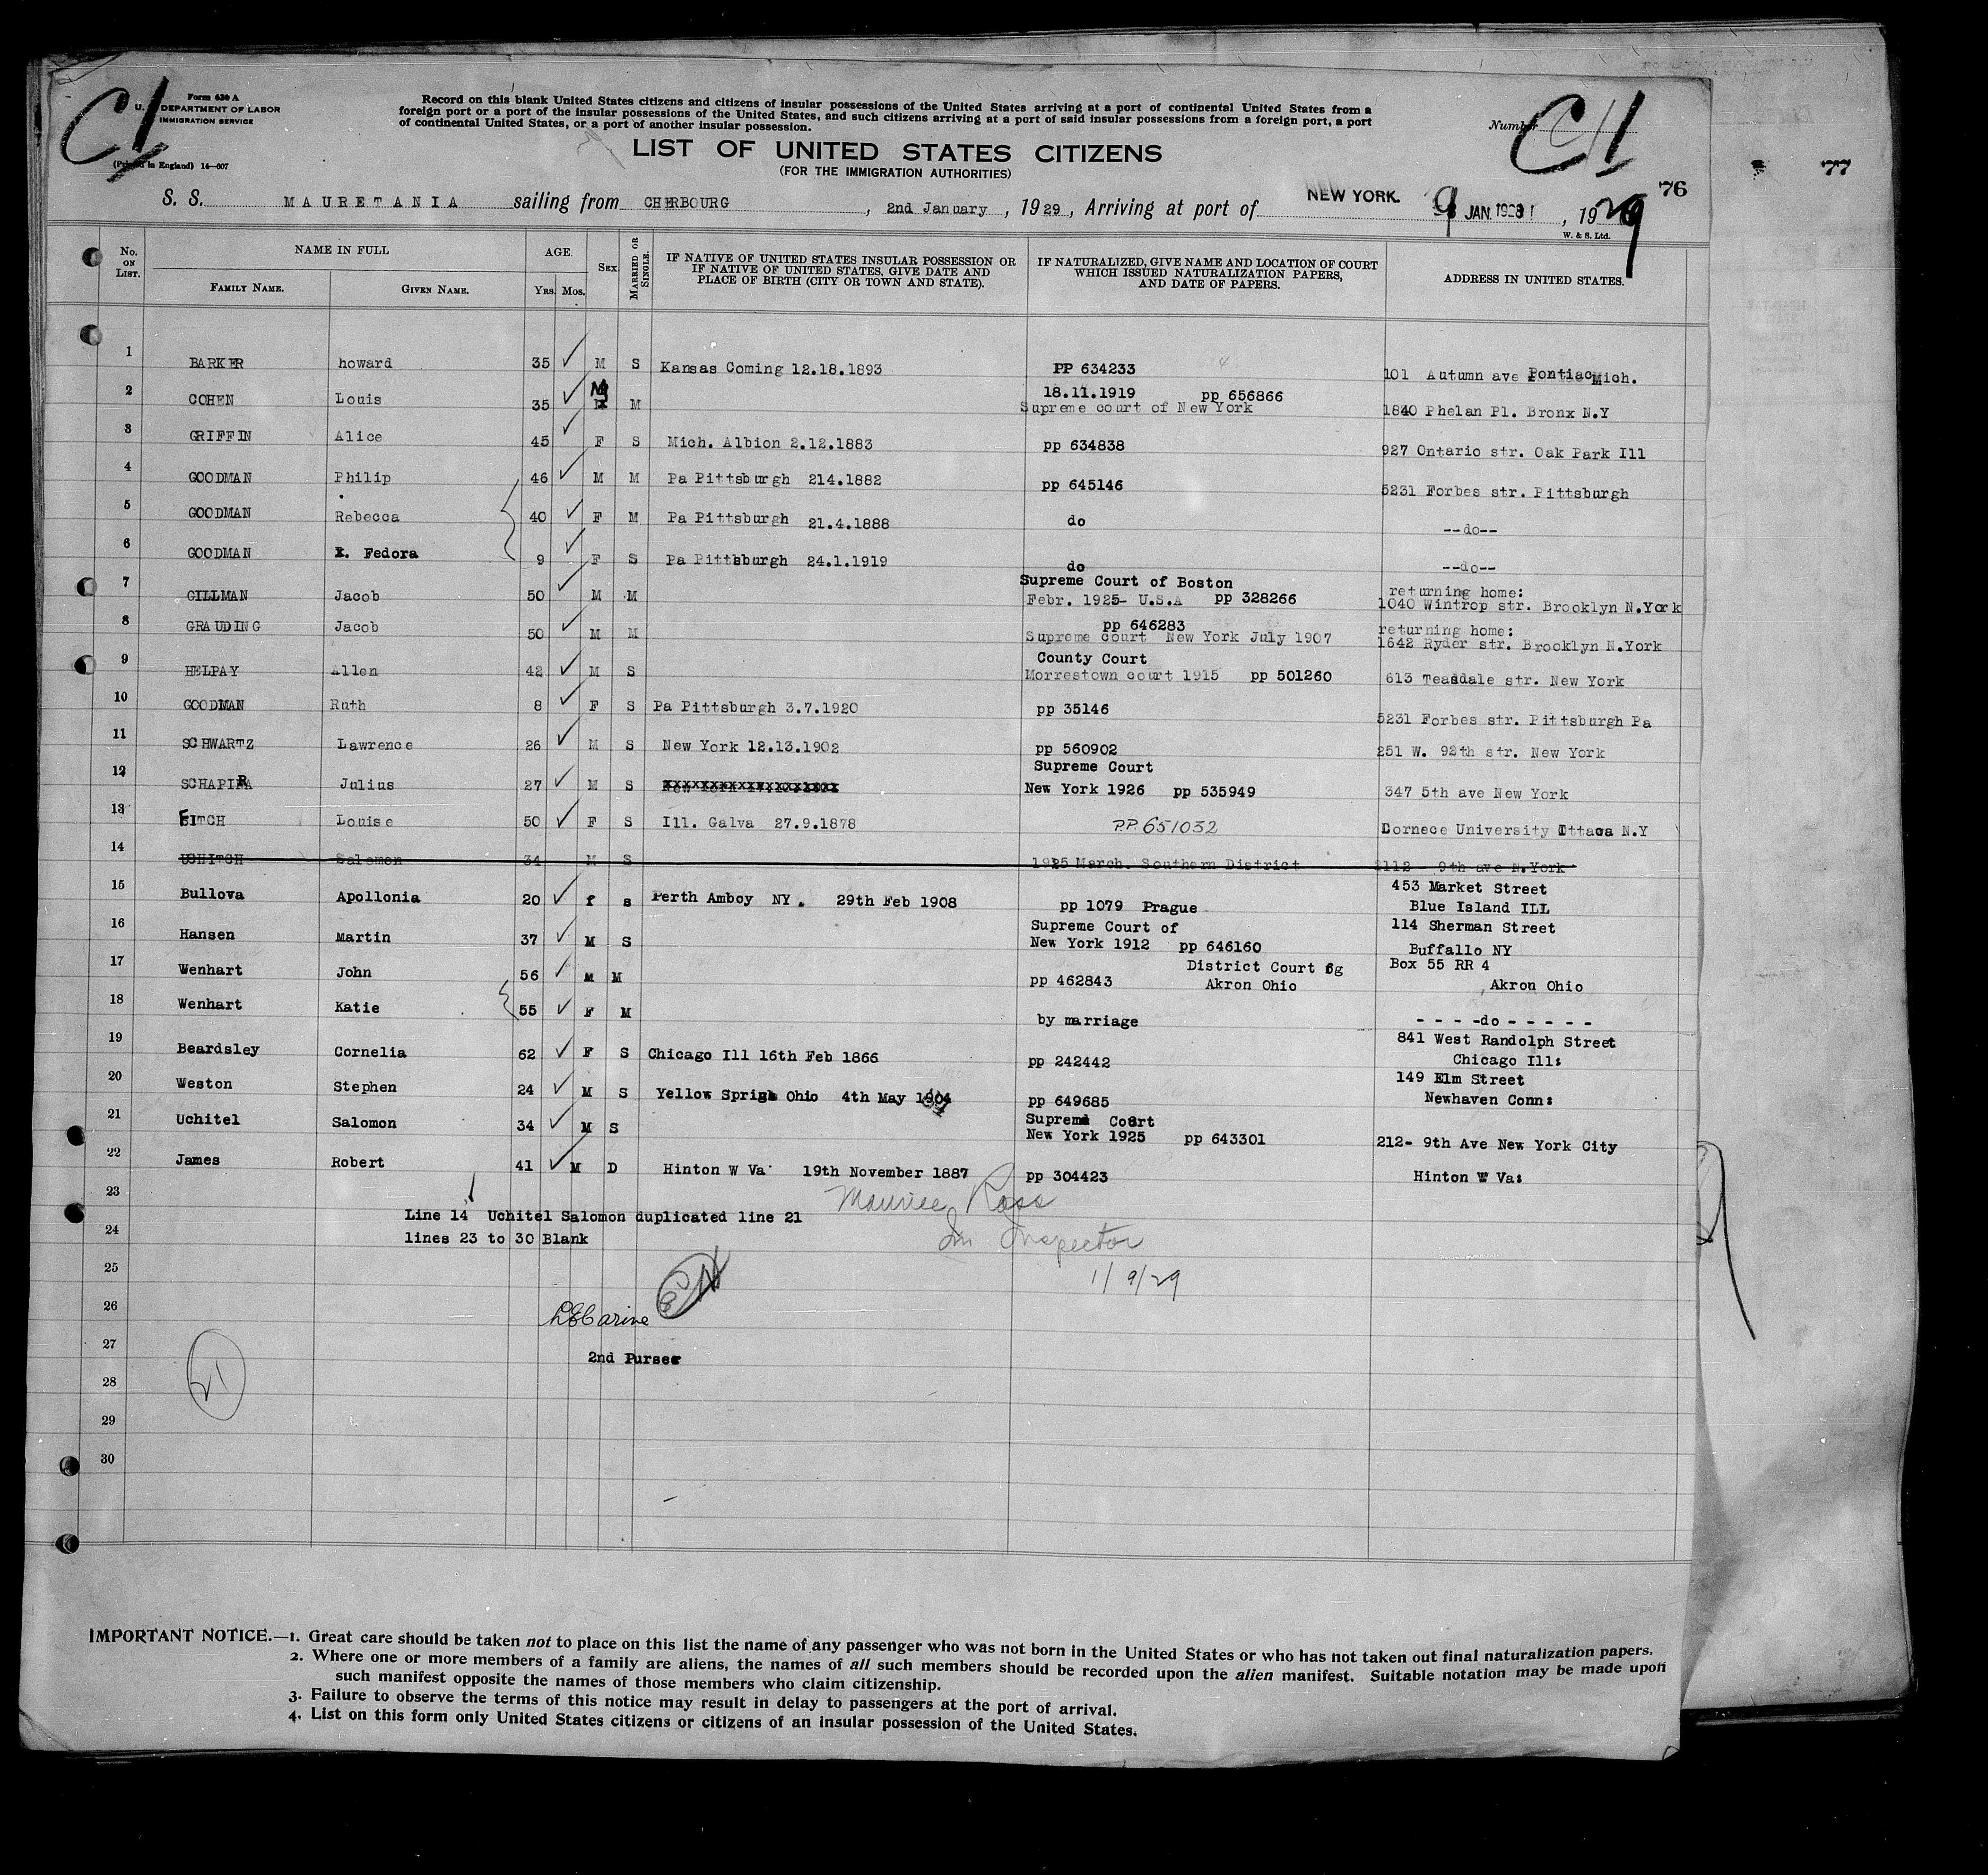 Form 630 A
U. S. DEPARTMENT OF LABOR
IMMIGRATION SERVICE
(Printed in England) 14—607
C1
Record on this blank United States citizens and citizens of insular possessions of the United States arriving at a port of continental United States from a
foreign port or a port of the insular possessions of the United States, and such citizens arriving at a port of said insular possessions from a foreign port, a port
of continental United States, or a port of another insular possession.
Number
LIST OF UNITED STATES CITIZENS
(FOR THE IMMIGRATION AUTHORITIES)
76
77
S. S. MAURETANIA sailing from CHERBOURG, 2nd January, 1929, Arriving at port of NEW YORK. 9 JAN. 1929
W. & S. Ltd.
No. ON LIST. NAME IN FULL FAMILY NAME. GIVEN NAME. AGE Yrs. Mos. SEX MARRIED OR SINGLE. IF NATIVE OF UNITED STATES INSULAR POSSESSION OR IF NATIVE OF UNITED STATES, GIVE DATE AND PLACE OF BIRTH (CITY OR TOWN AND STATE). IF NATURALIZED, GIVE NAME AND LOCATION OF COURT WHICH ISSUED NATURALIZATION PAPERS, AND DATE OF PAPERS. ADDRESS IN UNITED STATES.
1 BARKER howard 35 ✓ M S Kansas Coming 12.18.1893 PP 634233 101 Autumn ave Pontiac Mich.
2 COHEN Louis 35 ✓ M M 18.11.1919 pp 656866 Supreme court of New York 1840 Phelan Pl. Bronx N.Y
3 GRIFFIN Alice 45 ✓ F S Mich. Albion 2.12.1883 pp 634838 927 Ontario str. Oak Park Ill
4 GOODMAN Philip 46 ✓ M M Pa Pittsburgh 214.1882 pp 645146 5231 Forbes str. Pittsburgh
5 GOODMAN Rebecca 40 ✓ F M Pa Pittsburgh 21.4.1888 do --do--
6 GOODMAN Fedora 9 ✓ F S Pa Pittsburgh 24.1.1919 do --do--
7 GILLMAN Jacob 50 ✓ M M Supreme Court of Boston Febr. 1925- U.S.A pp 328266 returning home: 1040 Wintrop str. Brooklyn N.York
8 GRAUDING Jacob 50 ✓ M M pp 646283 Supreme court New York July 1907 returning home: 1642 Ryder str. Brooklyn N.York
9 HELPAY Allen 42 ✓ M S County Court Morrestown court 1915 pp 501260 613 Teasdale str. New York
10 GOODMAN Ruth 8 ✓ F S Pa Pittsburgh 3.7.1920 pp 35146 5231 Forbes str. Pittsburgh Pa
11 SCHWARTZ Lawrence 26 ✓ M S New York 12.13.1902 pp 560902 251 W. 92th str. New York
12 SCHAPIRA Julius 27 ✓ M S Supreme Court New York 1926 pp 535949 347 5th ave New York
13 FITCH Louise 50 ✓ F S Ill. Galva 27.9.1878 P.P. 651032 Cornece University Ittaca N.Y
14 UCHITCH Salomon 34 M S 1925 March. Southern District 2112 9th ave N.York
15 Bullova Apollonia 20 ✓ f s Perth Amboy NY. 29th Feb 1908 pp 1079 Prague 453 Market Street Blue Island ILL
16 Hansen Martin 37 ✓ M S Supreme Court of New York 1912 pp 646160 114 Sherman Street Buffallo NY
17 Wenhart John 56 ✓ M M pp 462843 District Court Akron Ohio Box 55 RR 4 Akron Ohio
18 Wenhart Katie 55 ✓ F M by marriage - - - -do - - - - -
19 Beardsley Cornelia 62 ✓ F S Chicago Ill 16th Feb 1866 pp 242442 841 West Randolph Street Chicago Ill:
20 Weston Stephen 24 ✓ M S Yellow Spring Ohio 4th May 1904 pp 649685 149 Elm Street Newhaven Conn:
21 Uchitel Salomon 34 ✓ M S Supreme Court New York 1925 pp 643301 212- 9th Ave New York City
22 James Robert 41 ✓ M D Hinton W Va 19th November 1887 pp 304423 Hinton W Va:
23
Maurice Ross
Line 14 Uchitel Salomon duplicated line 21
24
lines 23 to 30 Blank
Im Inspector
25
1/9/29
26
27
2nd Purser
28
21
29
30
IMPORTANT NOTICE.—1. Great care should be taken not to place on this list the name of any passenger who was not born in the United States or who has not taken out final naturalization papers.
2. Where one or more members of a family are aliens, the names of all such members should be recorded upon the alien manifest. Suitable notation may be made upon
such manifest opposite the names of those members who claim citizenship.
3. Failure to observe the terms of this notice may result in delay to passengers at the port of arrival.
4. List on this form only United States citizens or citizens of an insular possession of the United States.